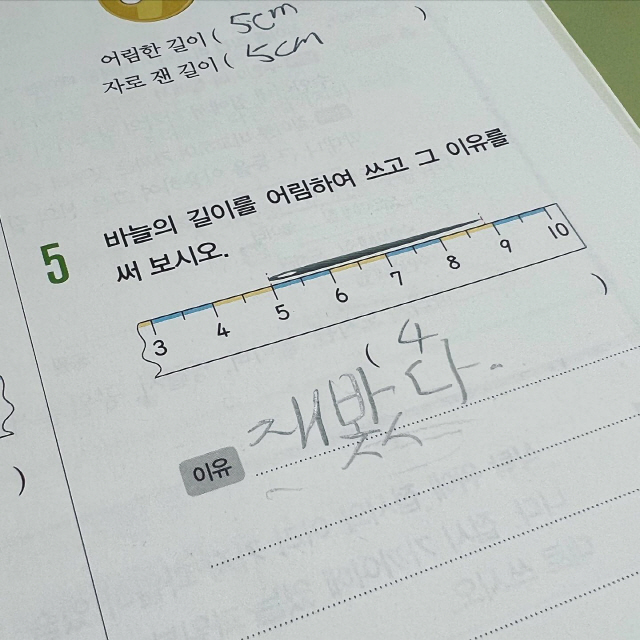 어림한 길이 ( 5cm )
자로 잰 길이 ( 5cm
5 바늘의 길이를 어림하여 쓰고 그 이유를
써 보시오.
3 4 5 6 7 8 9 10
( 4 )
이유 재봤다.